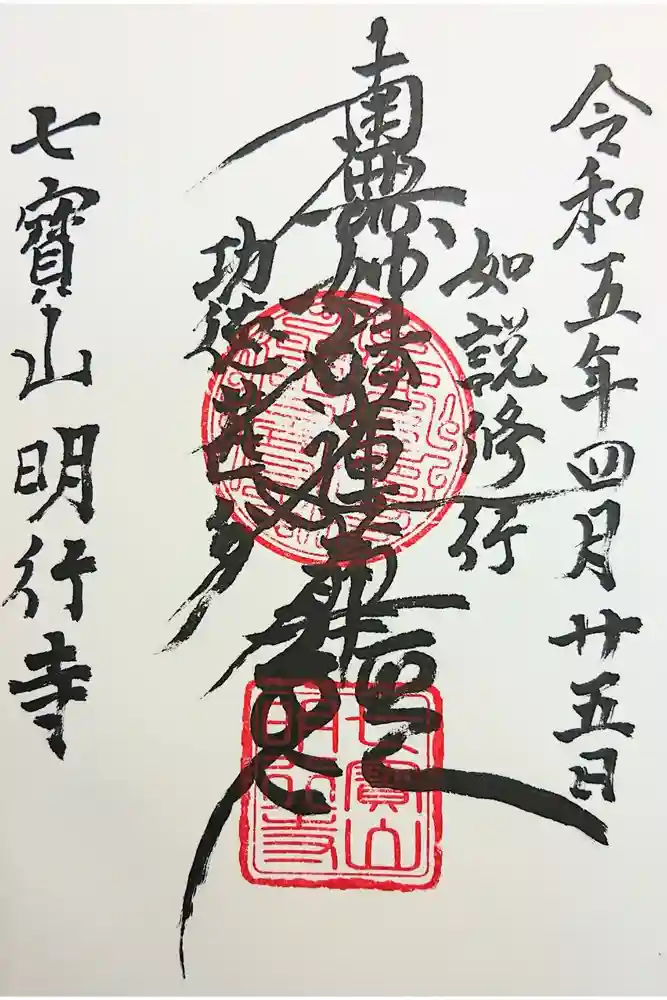 令和五年四月廿五日
如説修行
南無妙法蓮華経
功徳甚多
七寶山明行寺
七寶山
明行寺